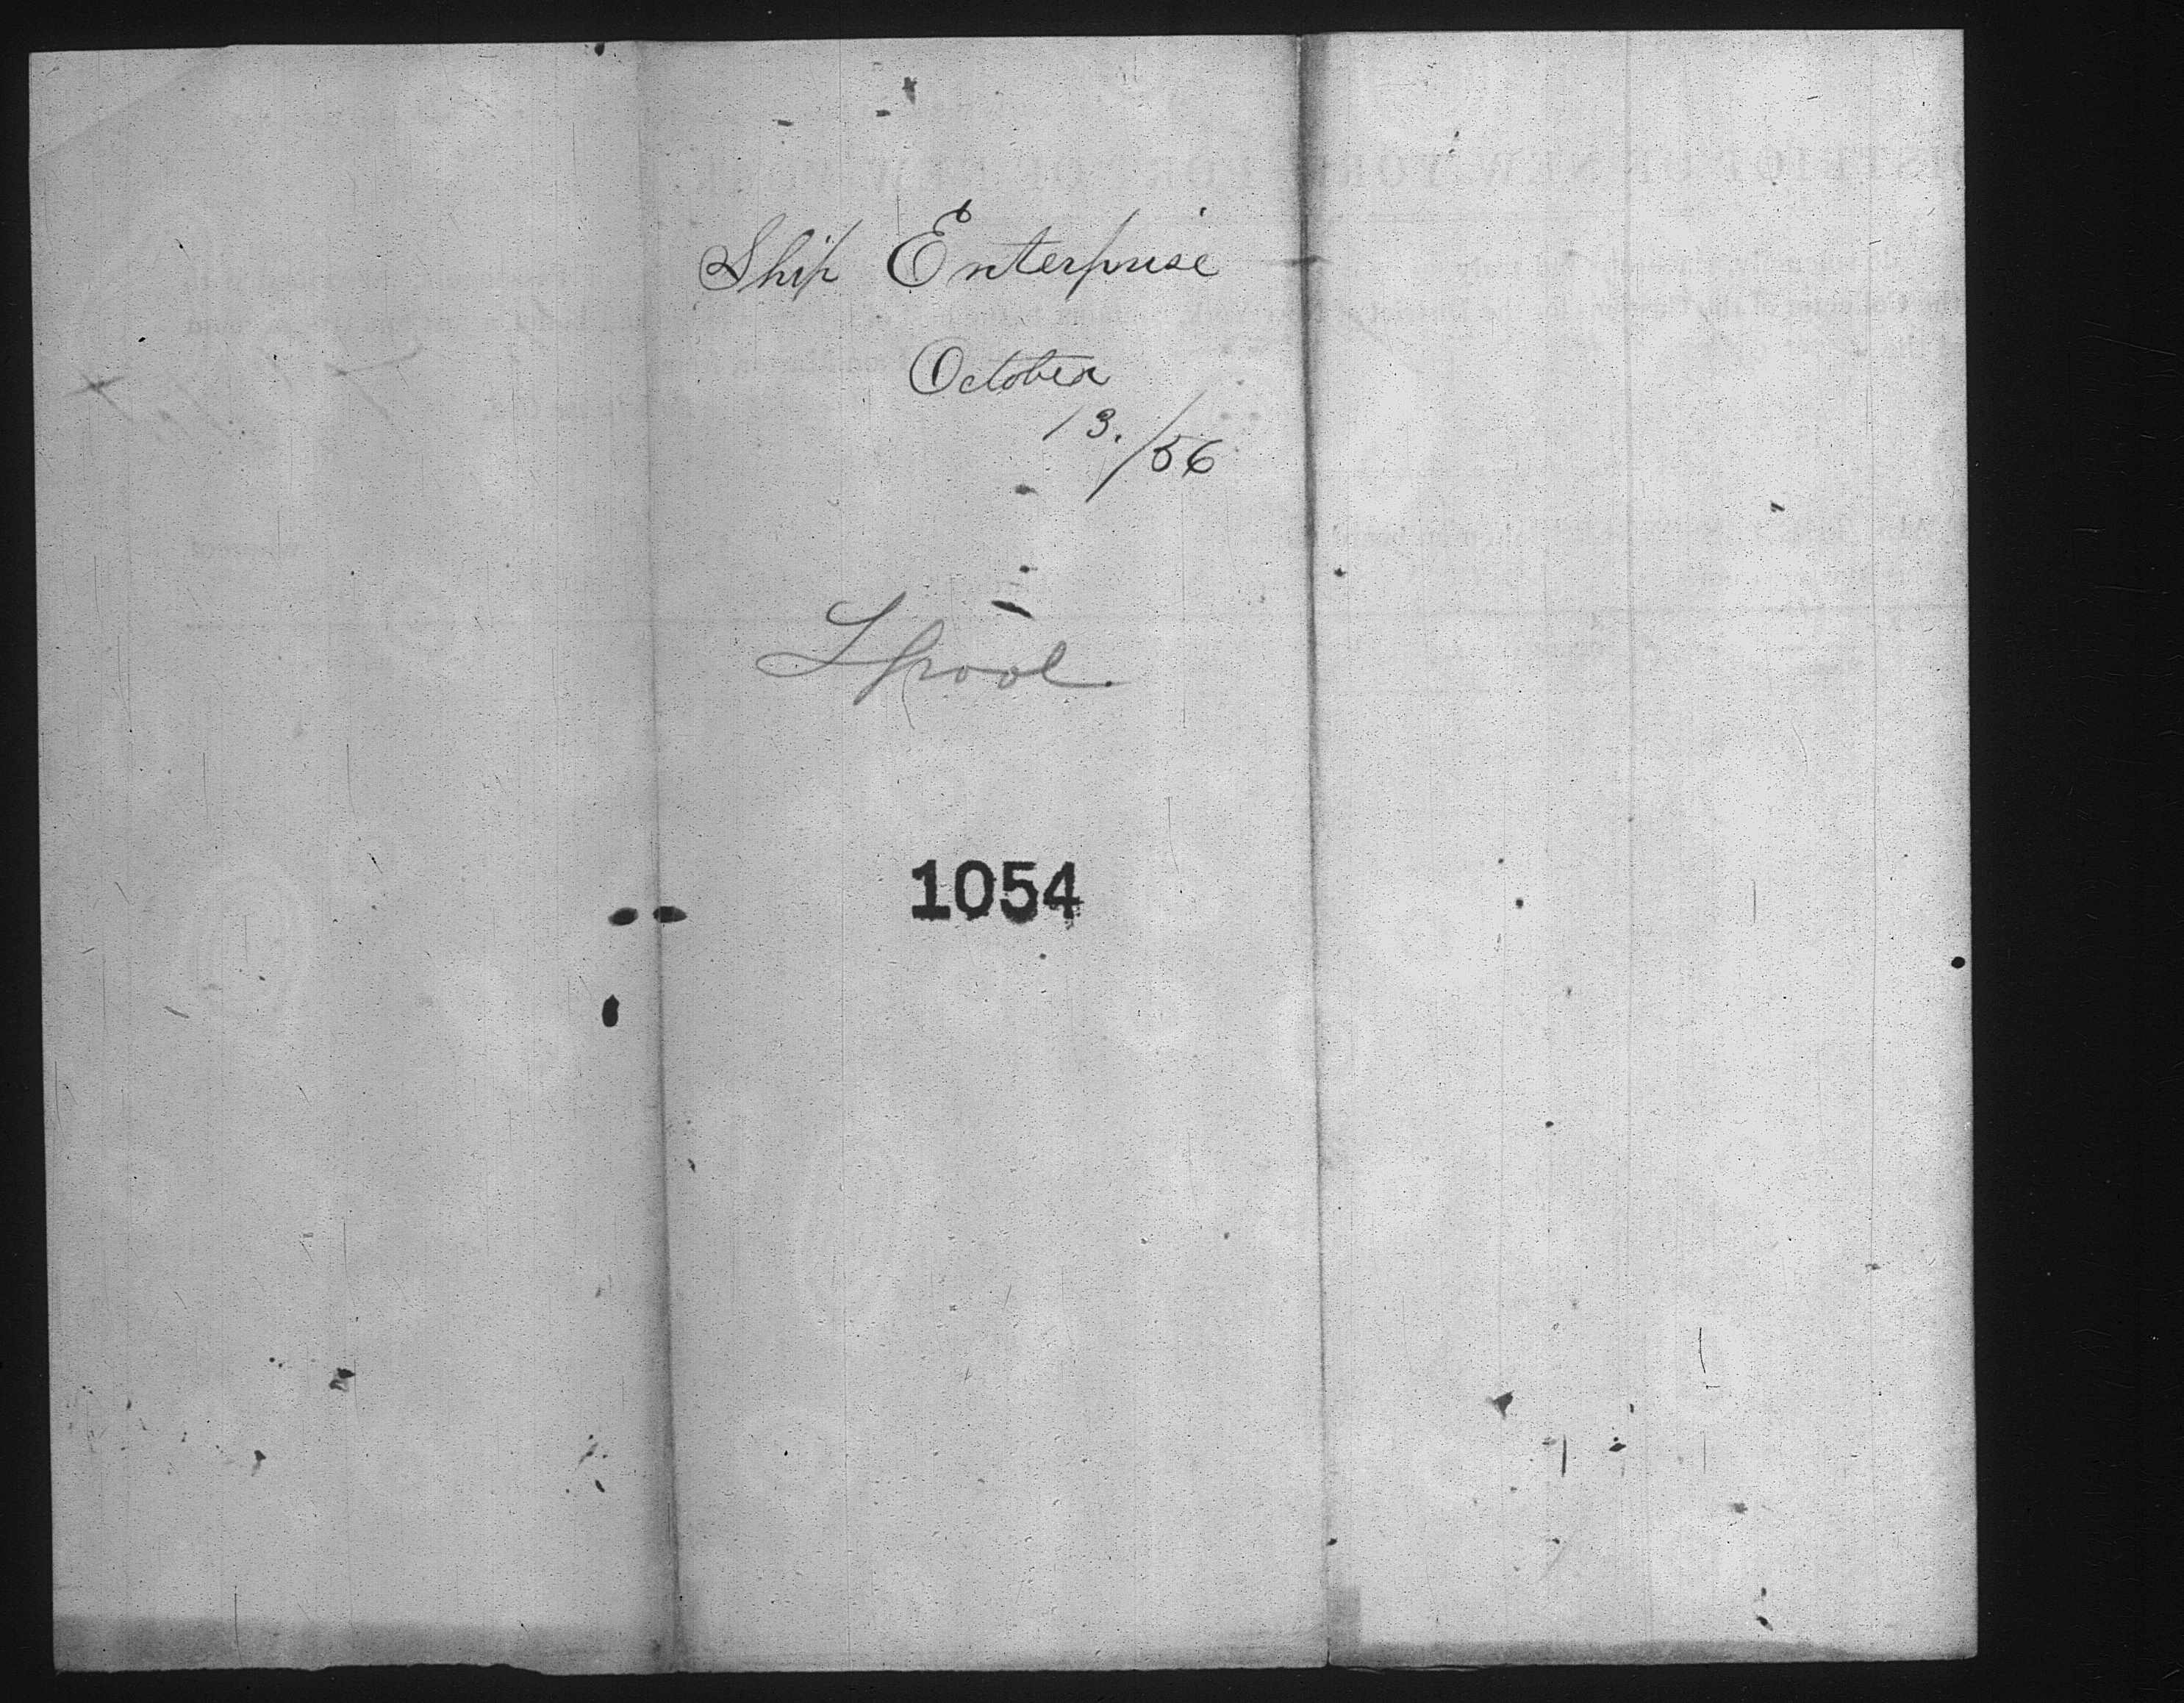 Ship Enterprise
October
13./56
Lpool.
1054